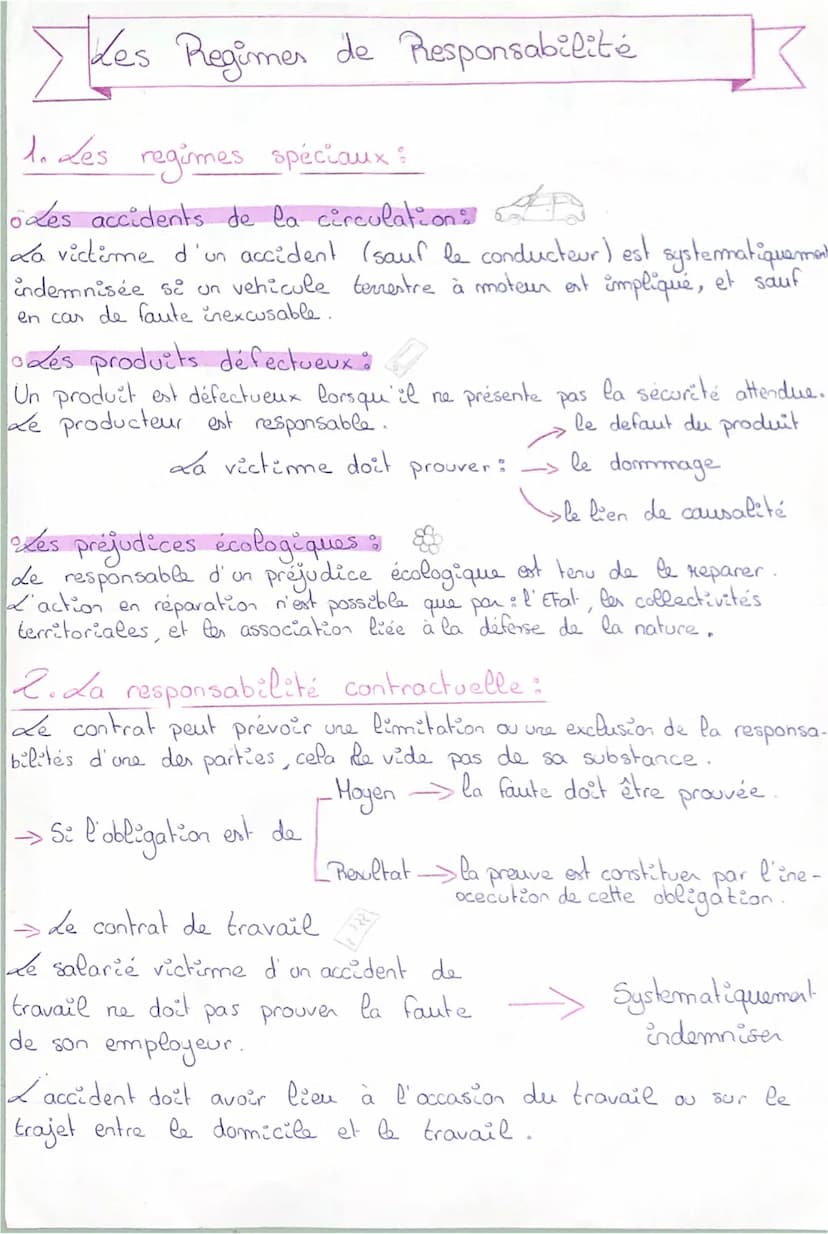 Les Regimes de Responsabilité
1. Les regimes spéciaux :
Les accidents de la circulation :
La victime d'un accident (sauf le conducteur) est systematiquement
indemnisée si un vehicule terrestre à moteur est impliqué, et sauf
en cas de faute inexcusable.
Les produits défectueux :
Un produit est défectueux lorsqu'il ne présente pas la sécurité attendue.
Le producteur est responsable.
le defaut du produit
La victime doit prouver : → le dommage
le lien de causalité
Les préjudices écologiques :
Le responsable d'un préjudice écologique est tenu de le reparer.
L'action en réparation n'est possible que par : l'Etat, les collectivités
territoriales, et les association liée à la défense de la nature.
2. La responsabilité contractuelle :
Le contrat peut prévoir une limitation ou une exclusion de la responsa-
bilités d'une des parties, cela le vide pas de sa substance.
Moyen → la faute doit être prouvée.
→ Si l'obligation est de
Resultat → la preuve est constituer par l'ine-
ocecution de cette obligation.
→ Le contrat de travail
Le salarié victime d'un accident de
travail ne doit pas prouver la faute → Systematiquement
de son employeur. indemniser
L'accident doit avoir lieu à l'occasion du travail ou sur le
trajet entre le domicile et le travail.